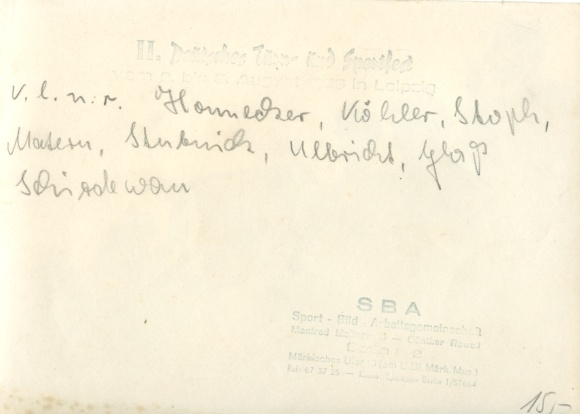 II. Deutsches Turn- und Sportfest
vom 2. bis 5. August 1956 in Leipzig
v.l.n.r. Honnecker, Köhler, Stoph,
Matern, Stubnick, Ulbricht, Glaß
Schirdewan
SBA
Sport - Bild - Arbeitsgemeinschaft
Manfred — Günther
Berlin C 2
Märkisches Ufer Märk. Mus.)
Ruf: 67 37 25 — Berlin 1/57664
15,-